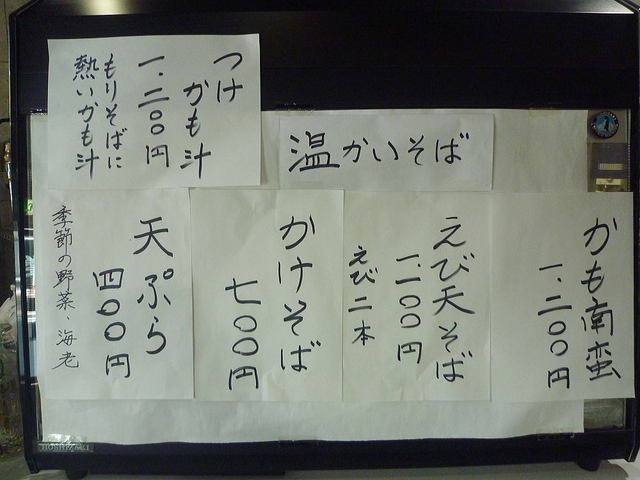 温かいそば
かも南蛮
一、二〇〇円
えび天そば
一、一〇〇円
えび二本
かけそば
七〇〇円
天ぷら
四〇〇円
季節の野菜・海老
つけ
かも汁
一、二〇〇円
もりそばに
熱いかも汁
HOSHIZAKI